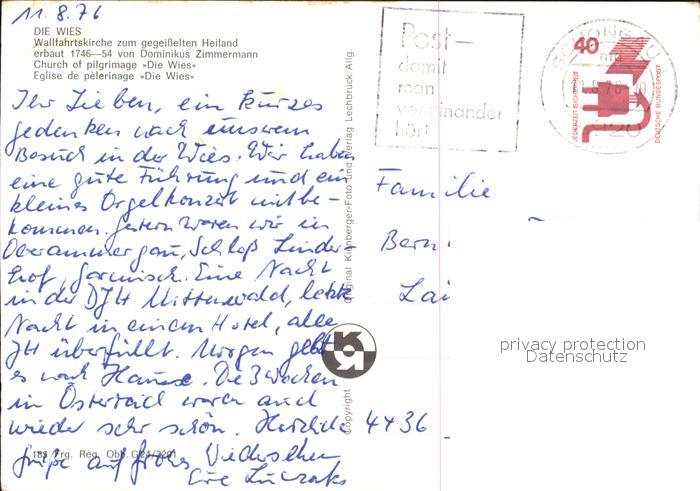 11.8.76
DIE WIES
Wallfahrtskirche zum gegeißelten Heiland
erbaut 1746—54 von Dominikus Zimmermann
Church of pilgrimage »Die Wies«
Eglise de pèlerinage »Die Wies«
Ihr Lieben, ein kurzes
gedenken nach unserem
Besuch in der Wies. Wir haben
eine gute Führung und ein
kleines Orgelkonzert mitbe-
kommen. Gestern waren wir in
Oberammergau, Schloß Linder-
hof, Garmisch. Eine Nacht
in der DJH Mittenwald, letzte
Nacht in einem Hotel, alle
JH überfüllt. Morgen geht
es nach Hause. Die 3 Wochen
in Österreich waren auch
wieder sehr schön. Herzliche
Grüße auf frohes Wiedersehen
Eure
183 Erg. Reg. Obb. G 24/2201
Copyright
Original Kienberger-Foto und Verlag Lechbruck/Allg.
Post—
damit
man
voneinander
hört
SCHONGAU
40
JEDERZEIT SICHERHEIT
DEUTSCHE BUNDESPOST
Familie
Bern
Lai
4436
privacy protection
Datenschutz